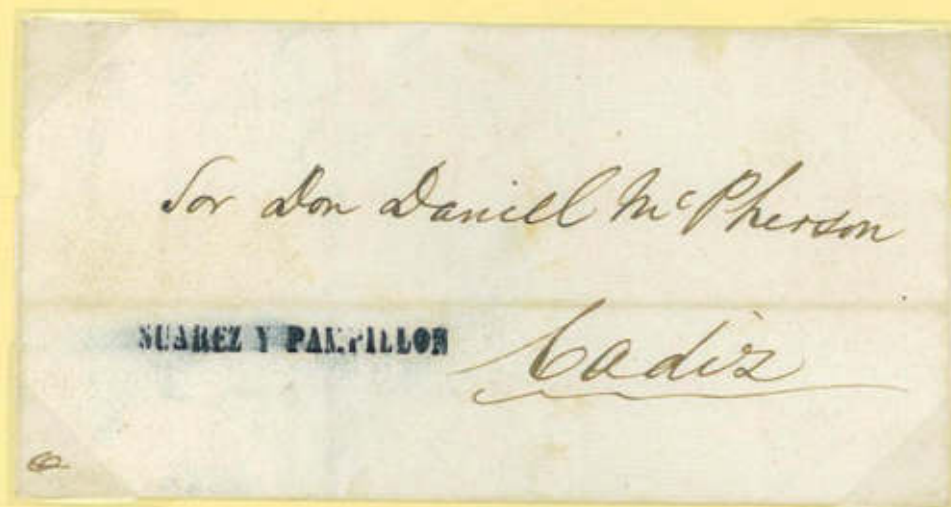 Sor Don Daniell McPherson
SUAREZ Y PAMPILLON
Cadiz